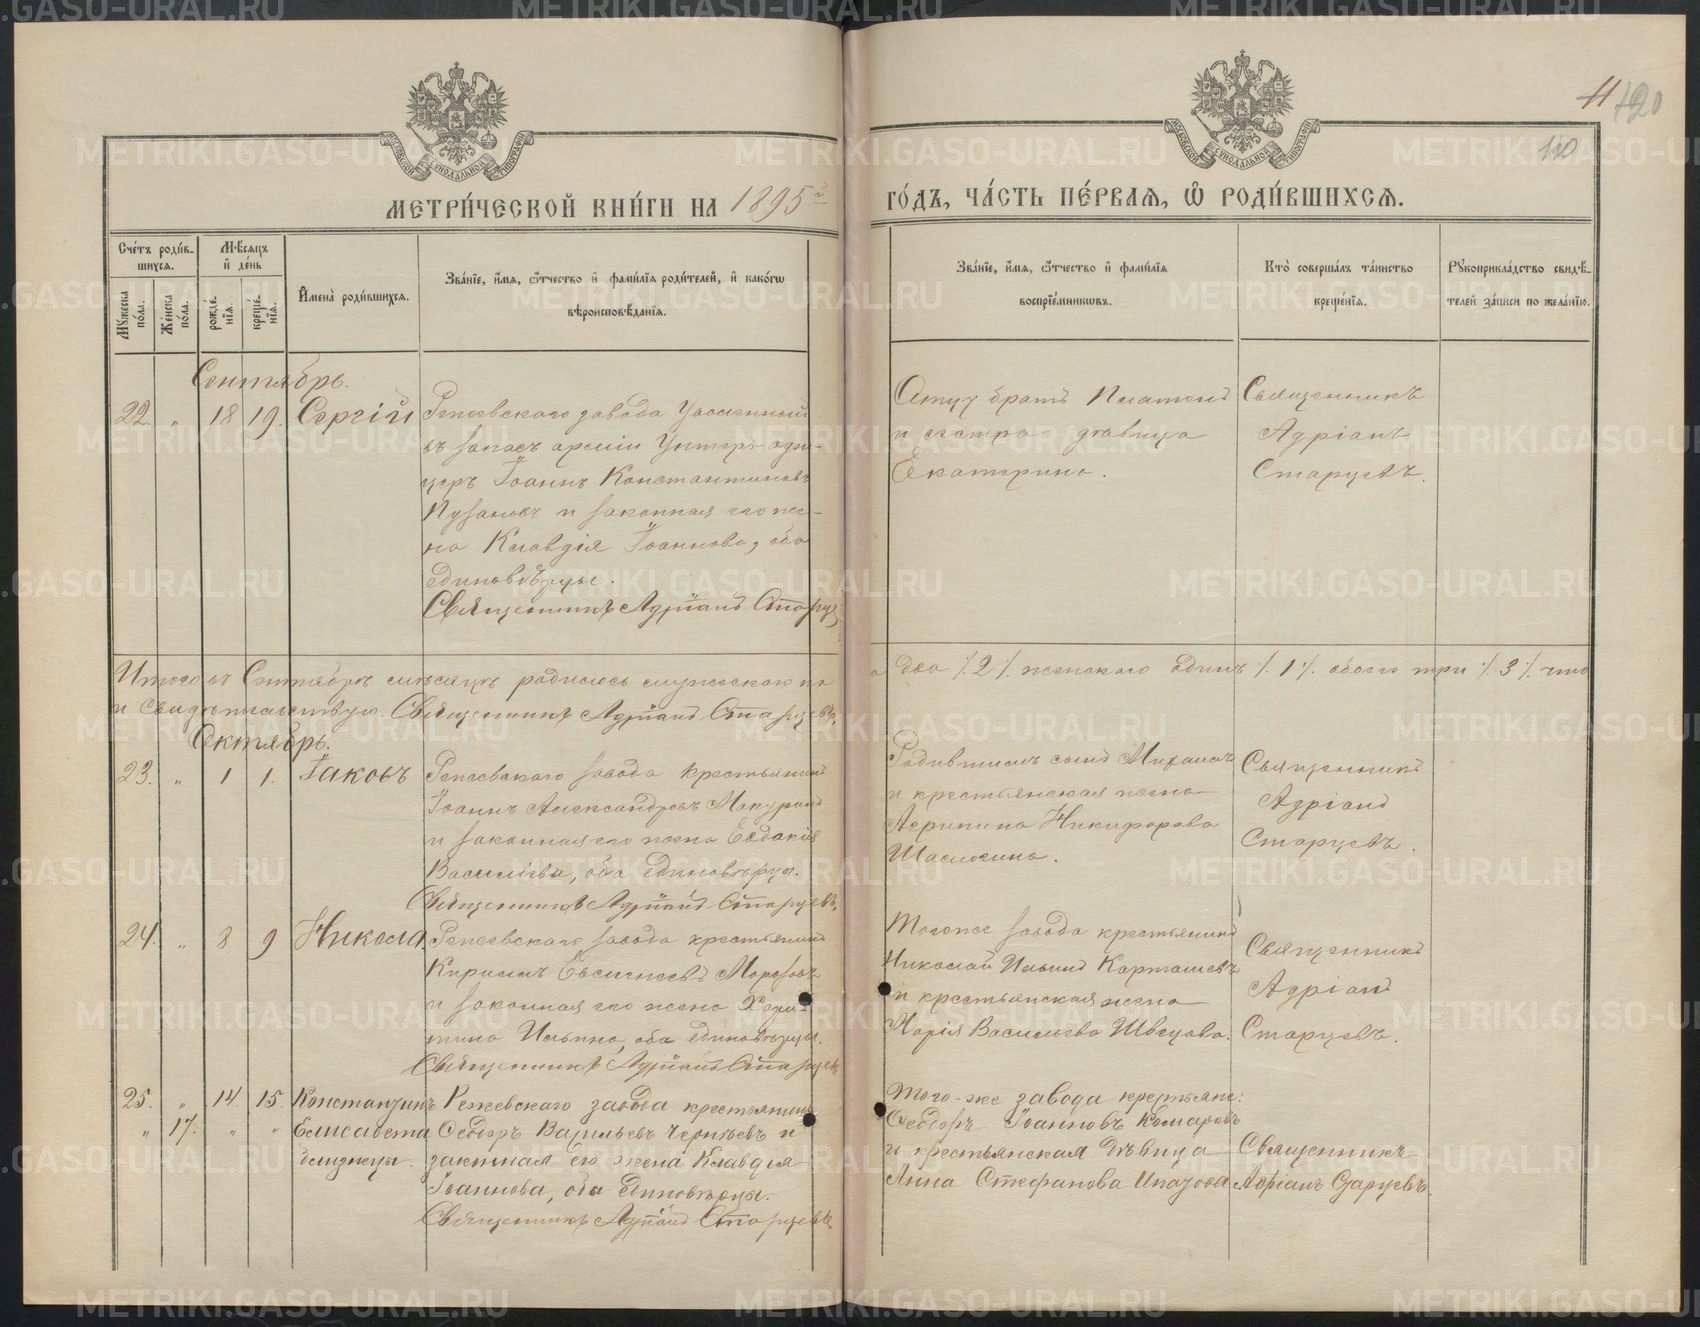 МЕТРИ́ЧЕСКОЙ КНИ́ГИ НА 1895й
ГО́ДЪ, ЧА́СТЬ ПЕ́РВАѦ, Ѡ РОДИ́ВШИХСѦ.
11
120
110
Сче́тъ роди́вшихся.
Мѣсяцъ и день
Мꙋжеска по́ла.
Же́нска по́ла.
рожде́нїя.
креще́нїя.
Имена̀ роди́вшихся.
Зва́нїе, и́мя, ѻ́тчество и фами́лїя роди́телей, и како́гѡ
вѣроисповѣ́данїя.
Зва́нїе, и́мя, ѻ́тчество и фами́лїя
воспрїе́мникѡвъ.
Кто̀ соверша́лъ та́инство
креще́нїя.
Рꙋкоприкла́дство свидѣ́-
телей за́писи по жела́нїю.
Сентябрь.
22. „ 18 19. Сергій
Режевскаго завода Уволенный
въ запасъ арміи Унтеръ-офи-
церъ Іоаннъ Константиновъ
Пузановъ и законная его же-
на Клавдія Іоаннова, оба
единовѣрцы.
Священникъ Адріанъ Старцев
Отцу братъ Платонъ
и сестра девица
Екатерина.
Священникъ
Адріанъ
Старцевъ.
Итого въ Сентябрѣ мѣсяцѣ родилось мужескаго по
ла два /2/ женскаго одинъ /1/. обоего три /3/. что
и свидѣтельствую. Священникъ Адріанъ Старцевъ.
Октябрь.
23. „ 1 1. Іаковъ
Режевскаго завода крестьянинъ
Іоаннъ Александровъ Мокурин
и законная его жена Евдокія
Василіева, оба единовѣрцы.
Священникъ Адріанъ Старцевъ.
Родившимъ сынъ Михаилъ
и крестьянская жена
Агрипина Никифорова
Священникъ
Адріанъ
Старцевъ.
24. „ 8 9 Никола
Режевскаго завода крестьянинъ
Кирилъ Евсигнеевъ Морозовъ
и законная его жена Хари-
тина Ильина, оба единовѣрцы.
Священникъ Адріанъ Старцев
Тогоже завода крестьянинъ
Николай Ильинъ Карташевъ
и крестьянская жена
Марія Васильева Швецова.
Священникъ
Адріанъ
Старцевъ.
25. „ 14. 15. Константинъ
„ 17. „ „ Елисавета
близнецы.
Режевскаго завода крестьянинъ
Ѳеодоръ Васильевъ Чепчевъ и
законная его жена Клавдія
Іоаннова, оба единовѣрцы.
Священникъ Адріанъ Старцевъ
Того-же завода крестьяне:
Ѳеодоръ Іоанновъ Комаровъ
и крестьянская дѣвица
Анна Стефанова
Священникъ
Адріанъ Старцевъ.